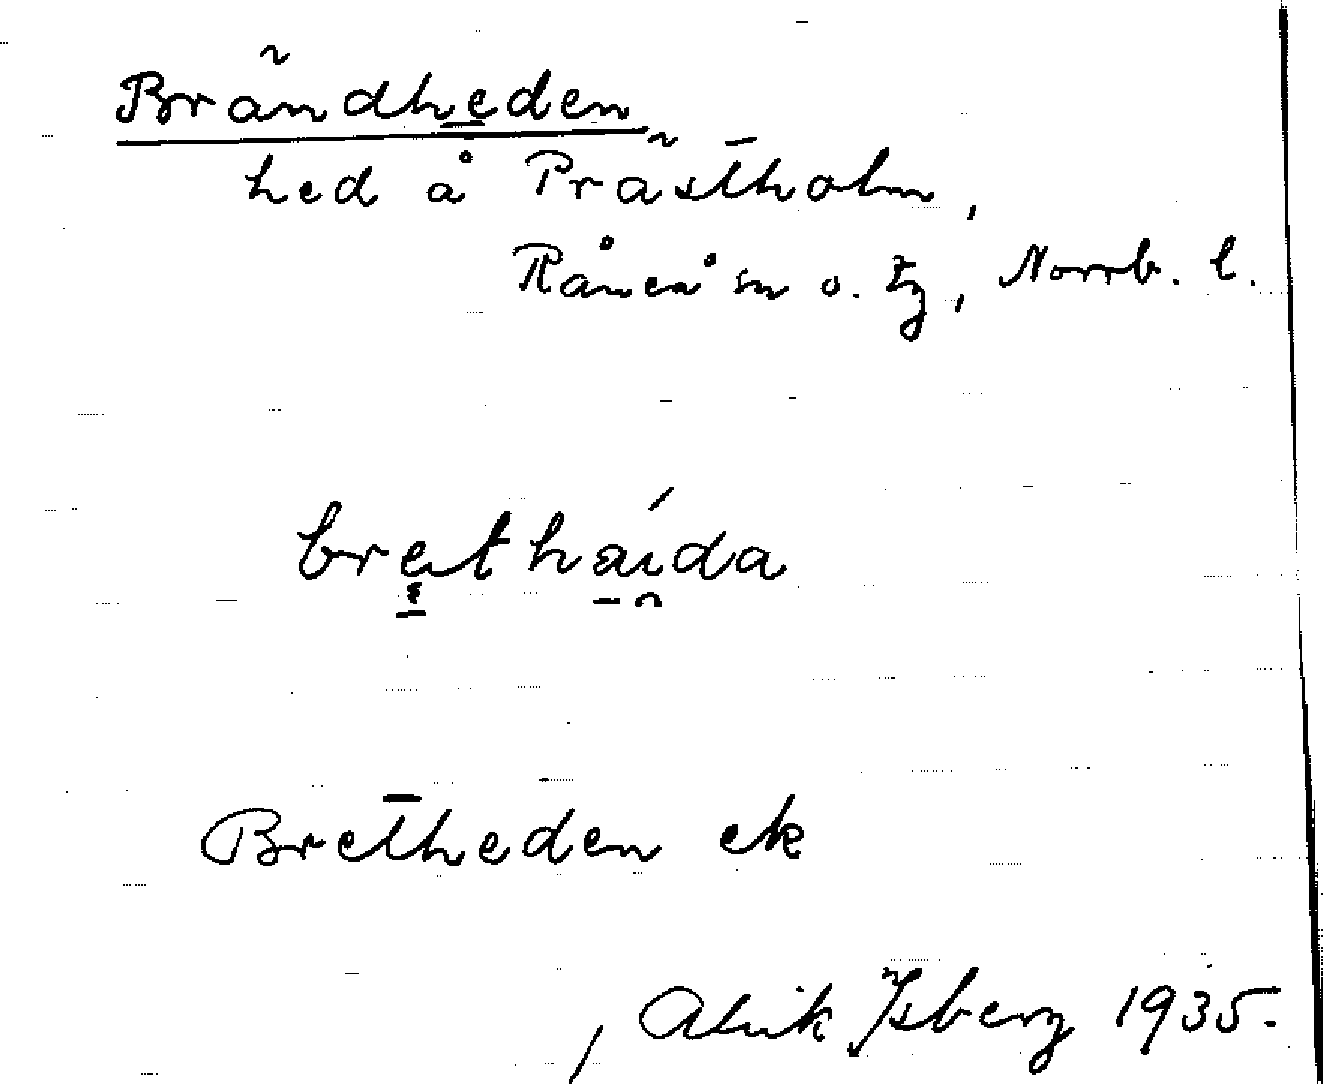 Brändheden
hed å Prästholm,
Råneå sn o. tg, Norrb. l.
bret háida
Bretheden ek
, Alrik Isberg 1935.